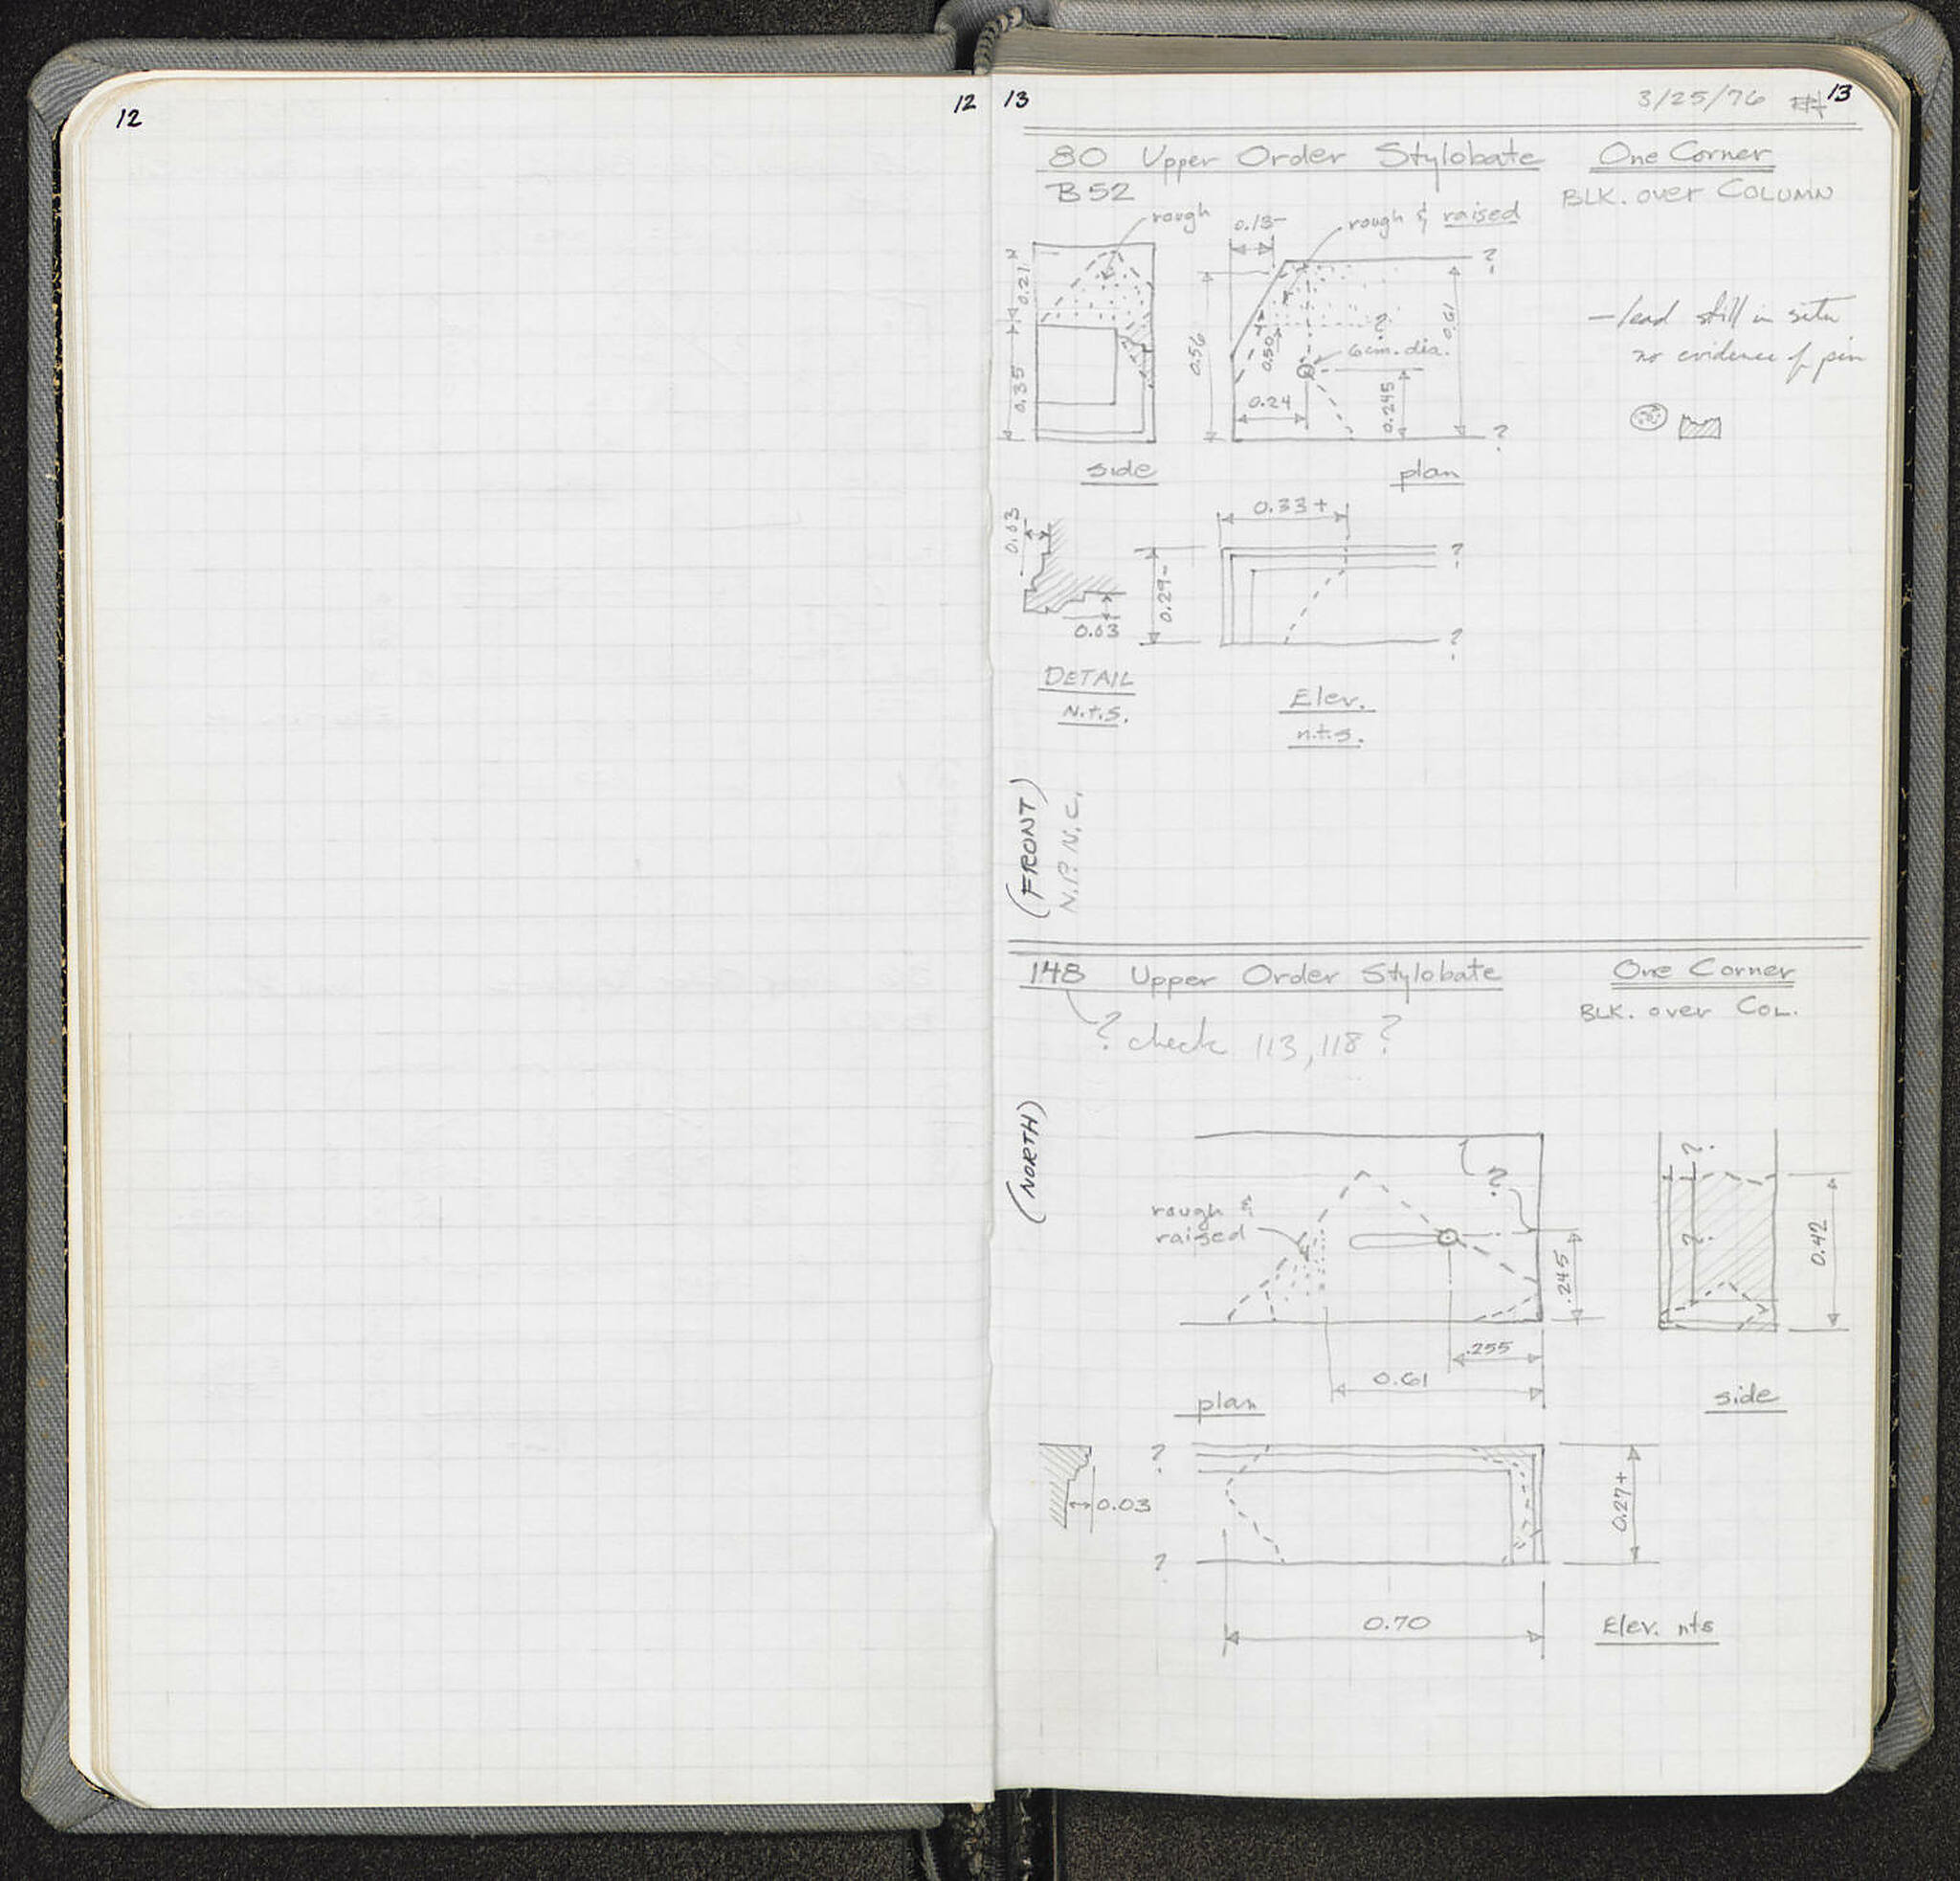 12
12
13
3/25/76
13
80 Upper Order Stylobate
One Corner
B52
BLK. over COLUMN
rough
0.13-
rough & raised
?
0.21
0.35
0.56
0.50
?
0.61
6cm. dia.
0.24
0.245
?
— lead still in situ
no evidence of pin
side
plan
0.03
0.33+
?
0.29-
0.03
?
DETAIL
N.t.S.
Elev.
n.t.s.
(FRONT)
N.P. N.C.
148 Upper Order Stylobate
One Corner
BLK. over COL.
? check 113, 118 ?
(NORTH)
?
rough &
raised
?
?
.245
0.42
.255
0.61
plan
side
?
0.03
0.27+
?
0.70
Elev. nts